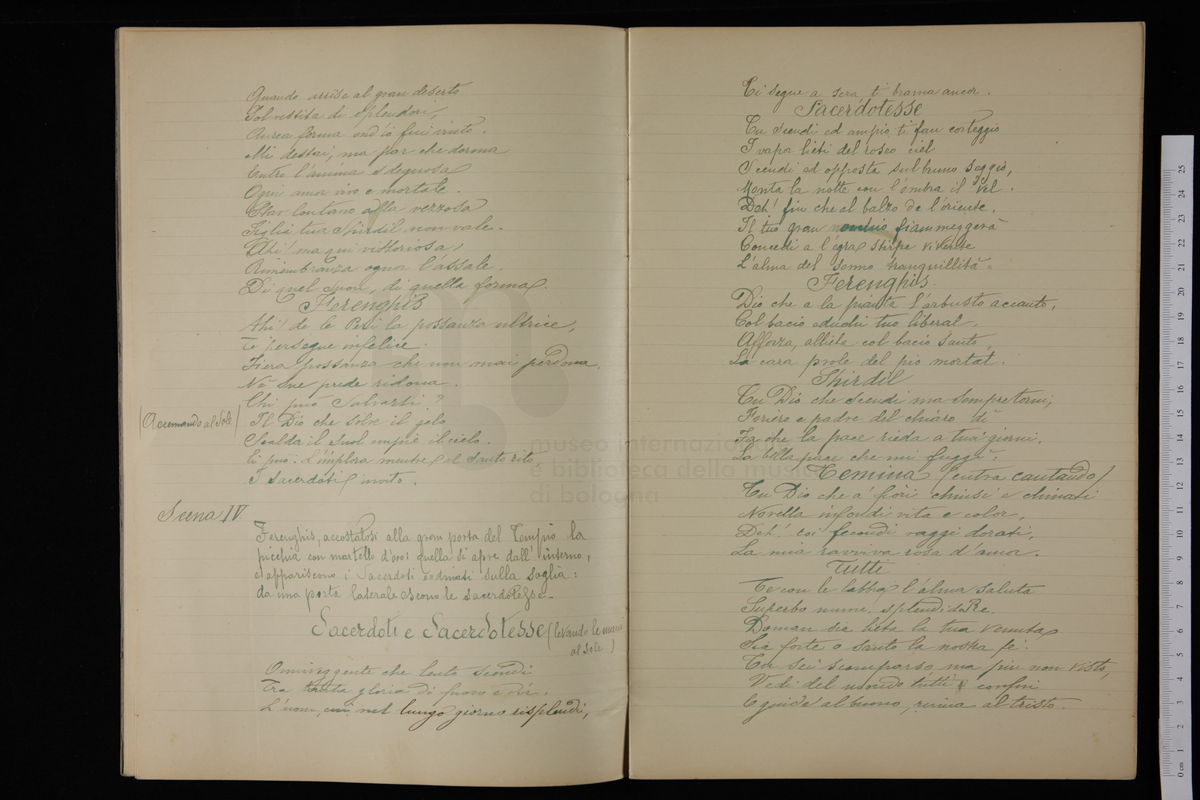 Quando arrise al gran deserto
Sol vestita di splendori,
Aurea forma ond'io fui vinto.
Mi destai, ma par che dorma
Entro l'anima sdegnosa
Ogni amor vivo e mortale.
Star lontano alla vezzosa
Figlia tua Shirdil non vale.
Ahi! ma qui vittoriosa
Rimembranza ognor l'assale.
Di quel suon, di quella forma.
Ferenghis
Ahi! de le Peri la possanza ultrice,
Te persegue infelice.
Fiera possanza che non mai perdona,
Nè sue prede ridona.
Chi può salvarti?
(Accennando al Sole)
Il Dio che solve il gelo
Scalda il suol empie il cielo.
Ei può. L'implora mentre al santo rito
I Sacerdoti invito.
Scena IV
Ferenghis, accostatosi alla gran porta del Tempio la
picchia con martello d'oro: quella si apre dall'interno,
e appariscono i Sacerdoti ordinati sulla soglia:
da una porta laterale escono le sacerdotesse.
Sacerdoti e Sacerdotesse (levando le mani
al sole)
Onniveggente che lento scendi
Tra tanta gloria di fuoco e d'or.
L'uom, cui nel lungo giorno risplendi,
Ti segue a sera ti brama ancor.
Sacerdotesse
Tu scendi ed ampio ti fan corteggio
I vapor lieti del roseo ciel
Scendi ed opposta sul bruno seggio,
Monta la notte con l'ombra il vel.
Deh! fin che al balzo de l'oriente,
Il tuo gran fiammeggerà
Concedi a l'egra stirpe vivente
L'alma del sonno tranquillità.
Ferenghis
Dio che a la pianta l'arbusto acanto,
Col bacio educhi tuo liberal.
Afforza, allieta col bacio santo,
La cara prole del pio mortal.
Shirdil
Tu Dio che scendi ma sempre torni,
Foriero e padre del chiaro dì
Fa che la pace rieda a' tuoi giorni.
La bella pace che mi fuggì.
Temina (entra cantando)
Tu Dio che a' fiori chiusi e chinati
Novella infondi vita e color,
Deh! coi fecondi raggi dorati,
La mia ravviva rosa d'amor.
Tutti
Te con le labbra l'alma saluta
Superbo nume, splendido Re.
Doman sia lieta la tua venuta
Sia forte o santo la nostra fe'.
Tu sei scomparso, ma pur non visto,
Vedi del mondo tutti i confini
E guida al buono, ruina al tristo.
museo internazionale
e biblioteca della musica
di bologna